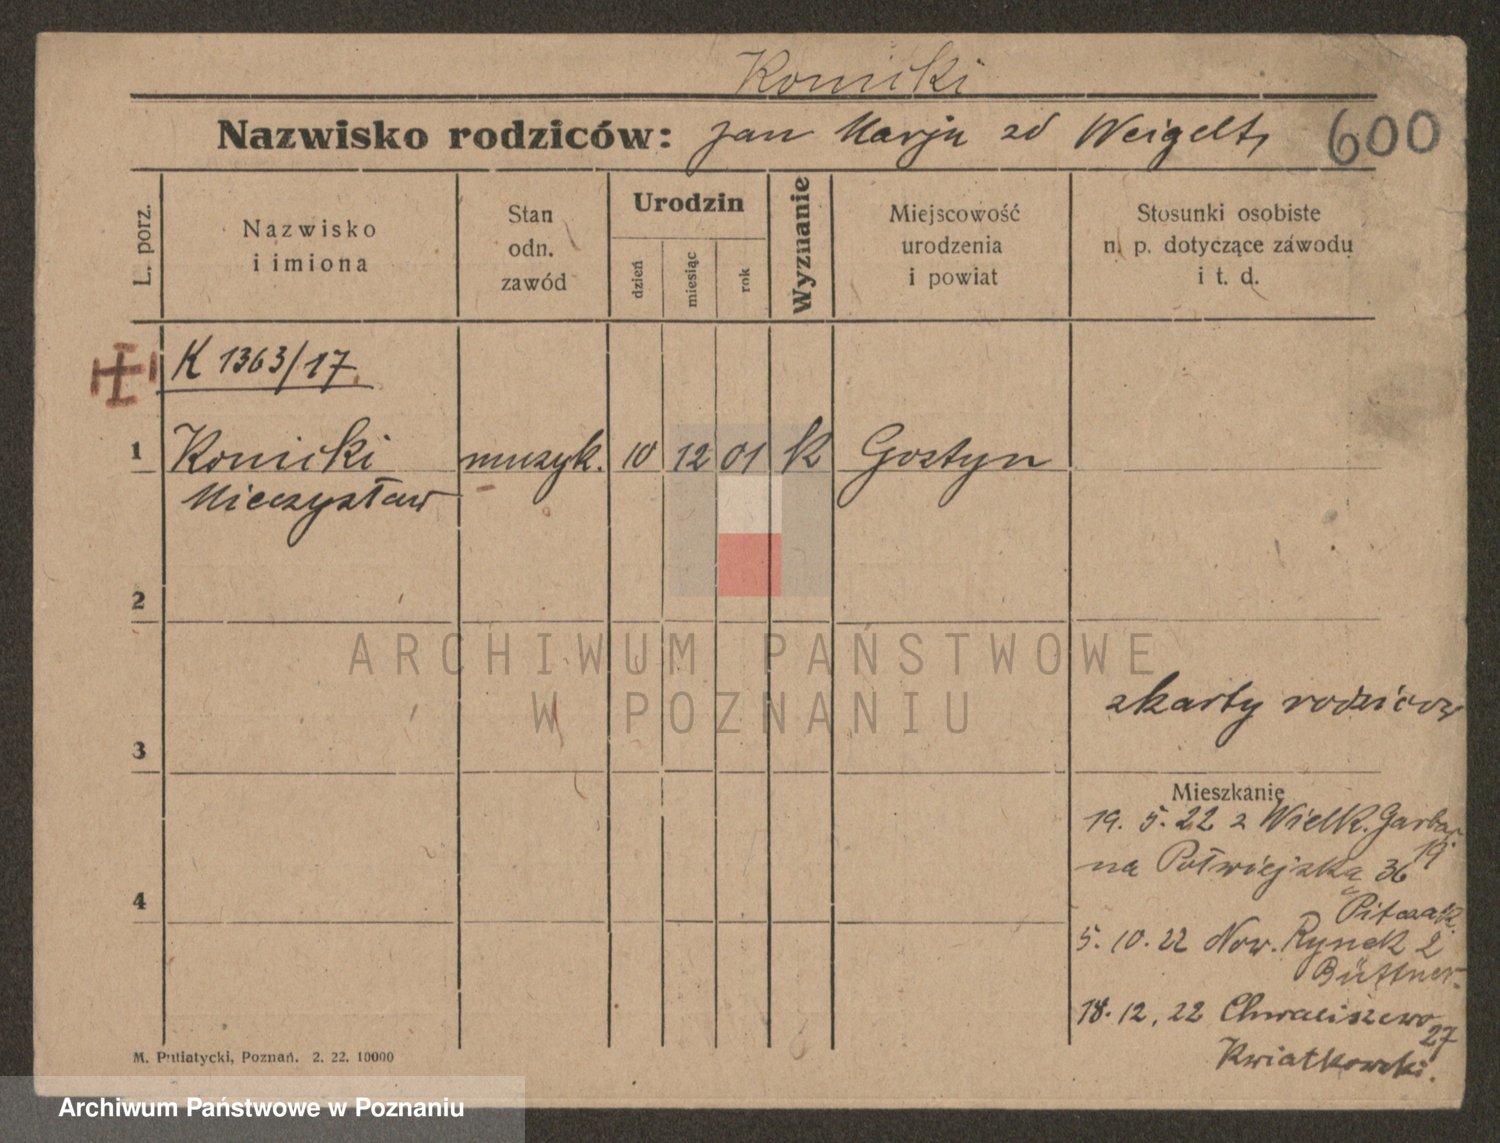 Konicki
Nazwisko rodziców: Jan Marja zd Weigelt,
600
L. porz.
Nazwisko
i imiona
Stan
odn.
zawód
Urodzin
dzień
miesiąc
rok
Wyznanie
Miejscowość
urodzenia
i powiat
Stosunki osobiste
n. p. dotyczące zawodu
i t. d.
K 1363/17
1 Konicki muzyk. 10 12 01 k Gostyn
Mieczysław
2
ARCHIWUM PAŃSTWOWE
W POZNANIU
z karty rodziców
3
Mieszkanie
19. 5. 22 z Wielk. Garbar
19
na Półwiejska 36
4
Pitczak
5. 10. 22 Now. Rynek 2
Büttner
18. 12. 22 Chwaliszewo
27
Kwiatkowski.
M. Putiatycki, Poznań. 2. 22. 10000
Archiwum Państwowe w Poznaniu